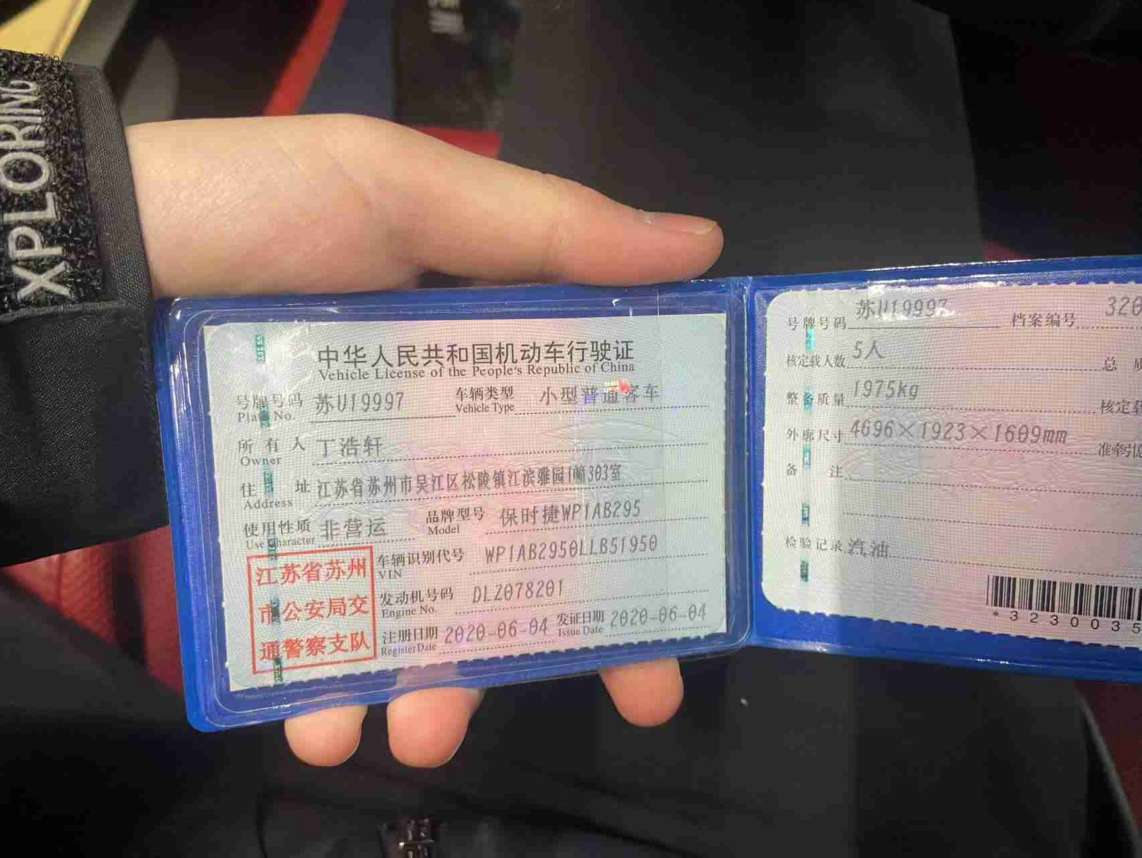 XPLORING
中华人民共和国机动车行驶证
Vehicle License of the People's Republic of China
号牌号码 苏U19997 车辆类型 小型普通客车
Plate No. Vehicle Type
所有人 丁浩轩
Owner
住址 江苏省苏州市吴江区松陵镇江滨雅园1幢303室
Address
使用性质 非营运 品牌型号 保时捷WP1AB295
Use Character Model
江苏省苏州
市公安局交
通警察支队
车辆识别代号 WP1AB2950LLB51950
VIN
发动机号码 DLZ078201
Engine No.
注册日期 2020-06-04 发证日期 2020-06-04
Register Date Issue Date
号牌号码 苏U19997 档案编号 326
核定载人数 5人 总质
整备质量 1975kg 核定载
外廓尺寸 4696×1923×1609mm 准牵引
备注
检验记录 汽油
*3230035